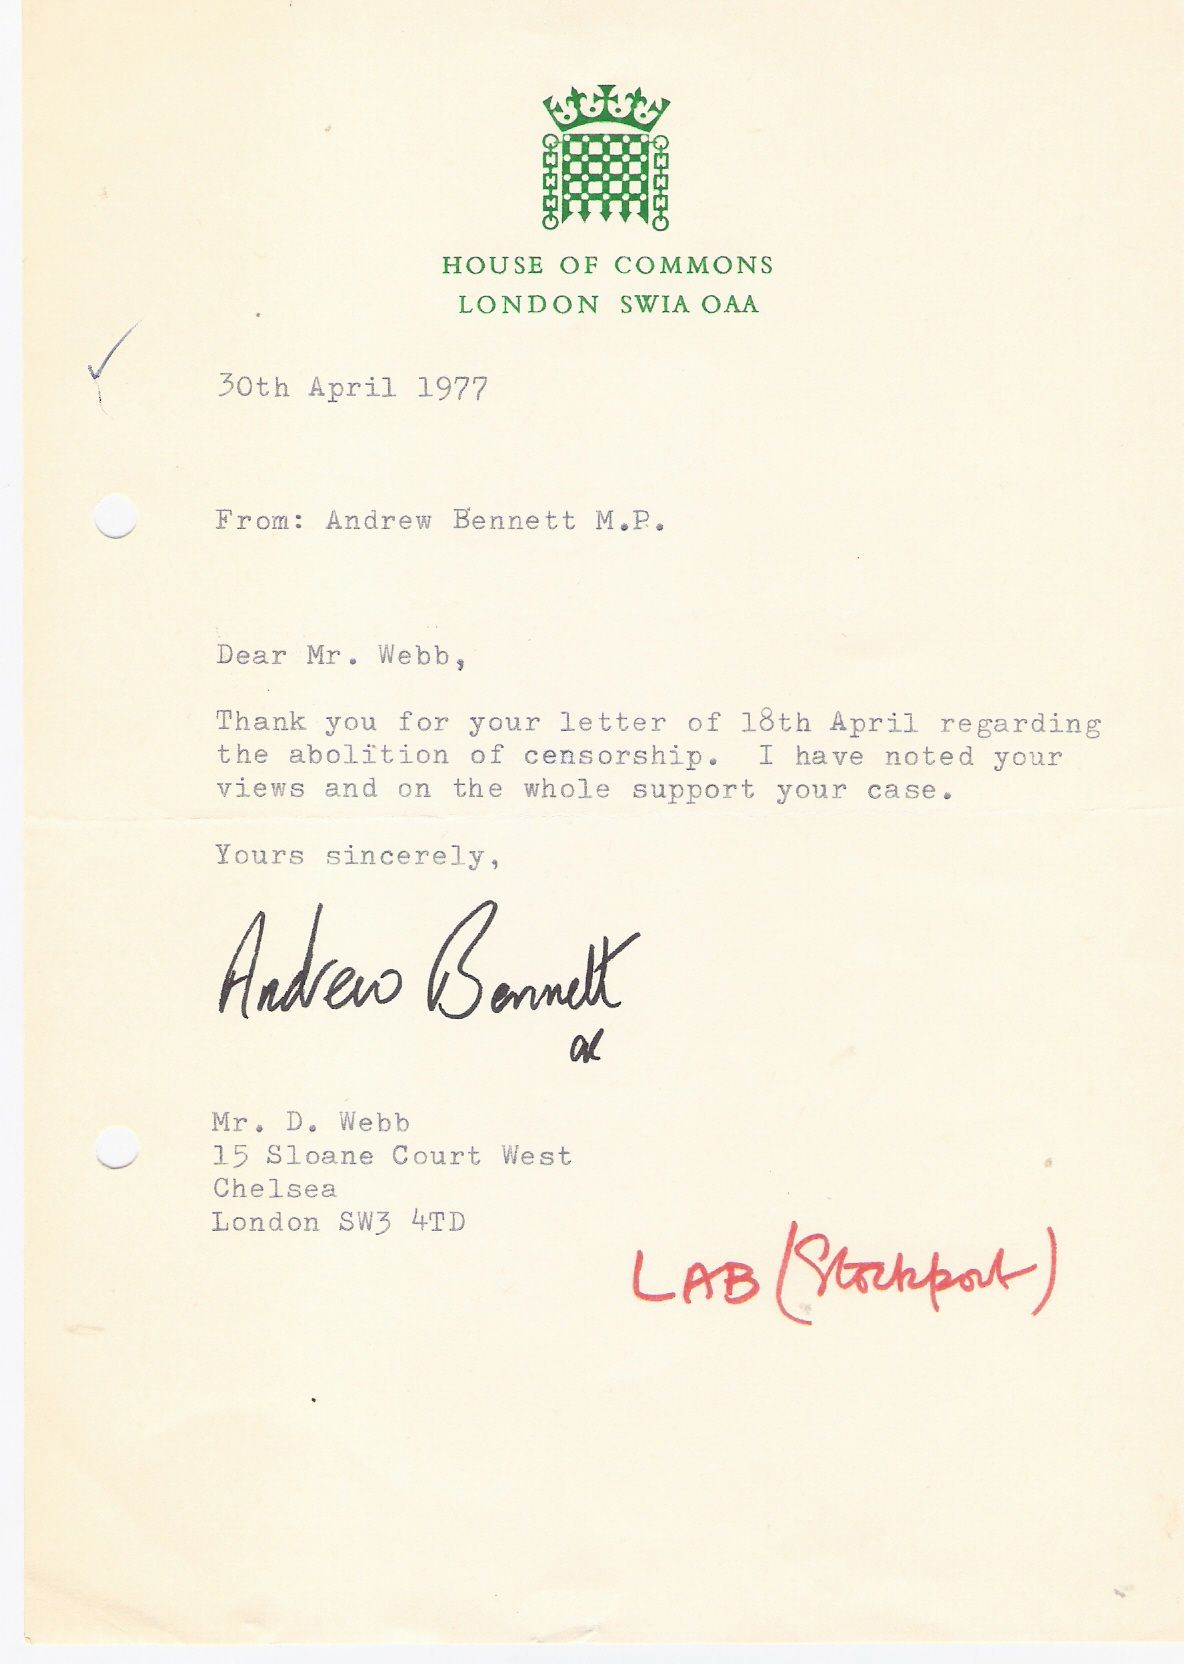 HOUSE OF COMMONS
LONDON SW1A 0AA
30th April 1977
From: Andrew Bennett M.P.
Dear Mr. Webb,
Thank you for your letter of 18th April regarding
the abolition of censorship.  I have noted your
views and on the whole support your case.
Yours sincerely,
Andrew Bennett
Mr. D. Webb
15 Sloane Court West
Chelsea
London SW3 4TD
LAB (Stockport)